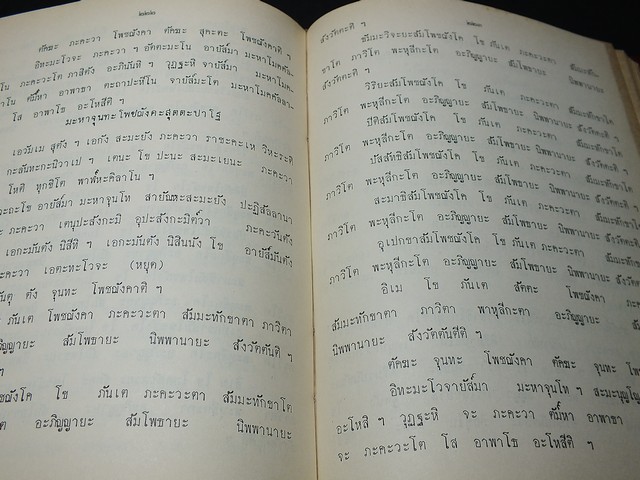 ตัคฆะ ภะคะวา โพชฌังคา ตัคฆะ สุคะตะ โพชฌังคาติ ฯ
อิทะมะโวจะ ภะคะวา ฯ อัตตะมะโน อายัส๎มา มะหาโมคคัล
โน ภะคะวะโต ภาสิตัง อะภินันทิ ฯ วุฏฐะหิ จายัส๎มา มะหาโม
โน ตัม๎หา อาพาธา ตะถาปะหีโน จายัส๎มะโต มะหาโมคคัลลา
โส อาพาโธ อะโหสีติ ฯ
มะหาจุนทะโพชฌังคะสุตตะปาโฐ
เอวัมเม สุตัง ฯ เอกัง สะมะยัง ภะคะวา ราชะคะเห วิหะระติ
กะลันทะกะนิวาเป ฯ เตนะ โข ปะนะ สะมะเยนะ ภะคะวา
โหติ ทุกขิโต พาฬ๎หะคิลาโน ฯ
อายัส๎มา มะหาจุนโท สายัณหะสะมะยัง ปะฏิสัลลานา
ภะคะวา เตนุปะสังกะมิ อุปะสังกะมิต๎วา ภะคะวันตัง
เอกะมันตัง นิสีทิ ฯ เอกะมันตัง นิสินนัง โข อายัส๎มันตัง
ะคะวา เอตะทะโวจะ (หยุด)
ันตุ ตัง จุนทะ โพชฌังคาติ ฯ
ภันเต โพชฌังคา ภะคะวะตา สัมมะทักขาตา ภาวิตา
ภิญญายะ สัมโพธายะ นิพพานายะ สังวัตตันติ ฯ
ฯ
ชฌังโค โข ภันเต ภะคะวะตา สัมมะทักขาโต
ต อะภิญญายะ สัมโพธายะ นิพพานายะ
สังวัตตะติ ฯ
ธัมมะวิจะยะสัมโพชฌังโค โข ภันเต ภะคะวะตา สัมมะทัก
ขาโต ภาวิโต พะหุลีกะโต อะภิญญายะ สัมโพธายะ นิพพานายะ
สังวัตตะติ ฯ
วิริยะสัมโพชฌังโค โข ภันเต ภะคะวะตา สัมมะทักขาโต
ภาวิโต พะหุลีกะโต อะภิญญายะ สัมโพธายะ นิพพานายะ สังวัตตะติ ฯ
ปีติสัมโพชฌังโค โข ภันเต ภะคะวะตา สัมมะทักขาโต
ภาวิโต พะหุลีกะโต อะภิญญายะ สัมโพธายะ นิพพานายะ สังวัตตะติ ฯ
ปัสสัทธิสัมโพชฌังโค โข ภันเต ภะคะวะตา สัมมะทักขาโต
ภาวิโต พะหุลีกะโต อะภิญญายะ สัมโพธายะ นิพพานายะ สังวัตตะติ ฯ
สะมาธิสัมโพชฌังโค โข ภันเต ภะคะวะตา สัมมะทักขาโต
ภาวิโต พะหุลีกะโต อะภิญญายะ สัมโพธายะ นิพพานายะ สังวัตตะติ
อุเปกขาสัมโพชฌังโค โข ภันเต ภะคะวะตา สัมมะทักขาโต
ภาวิโต พะหุลีกะโต อะภิญญายะ สัมโพธายะ นิพพานายะ สังวัตตะติ
อิเม โข ภันเต สัตตะ โพชฌังคา
สัมมะทักขาตา ภาวิตา พาหุลีกะตา อะภิญญายะ
นิพพานายะ สังวัตตันตีติ ฯ
ตัคฆะ จุนทะ โพชฌังคา ตัคฆะ จุนทะ โพ
อิทะมะโวจายัส๎มา มะหาจุนโท ฯ สะมะนุญโญ
อะโหสิ ฯ วุฏฐะหิ จะ ภะคะวา ตัม๎หา อาพาธา
จะ ภะคะวะโต โส อาพาโธ อะโหสีติ ฯ